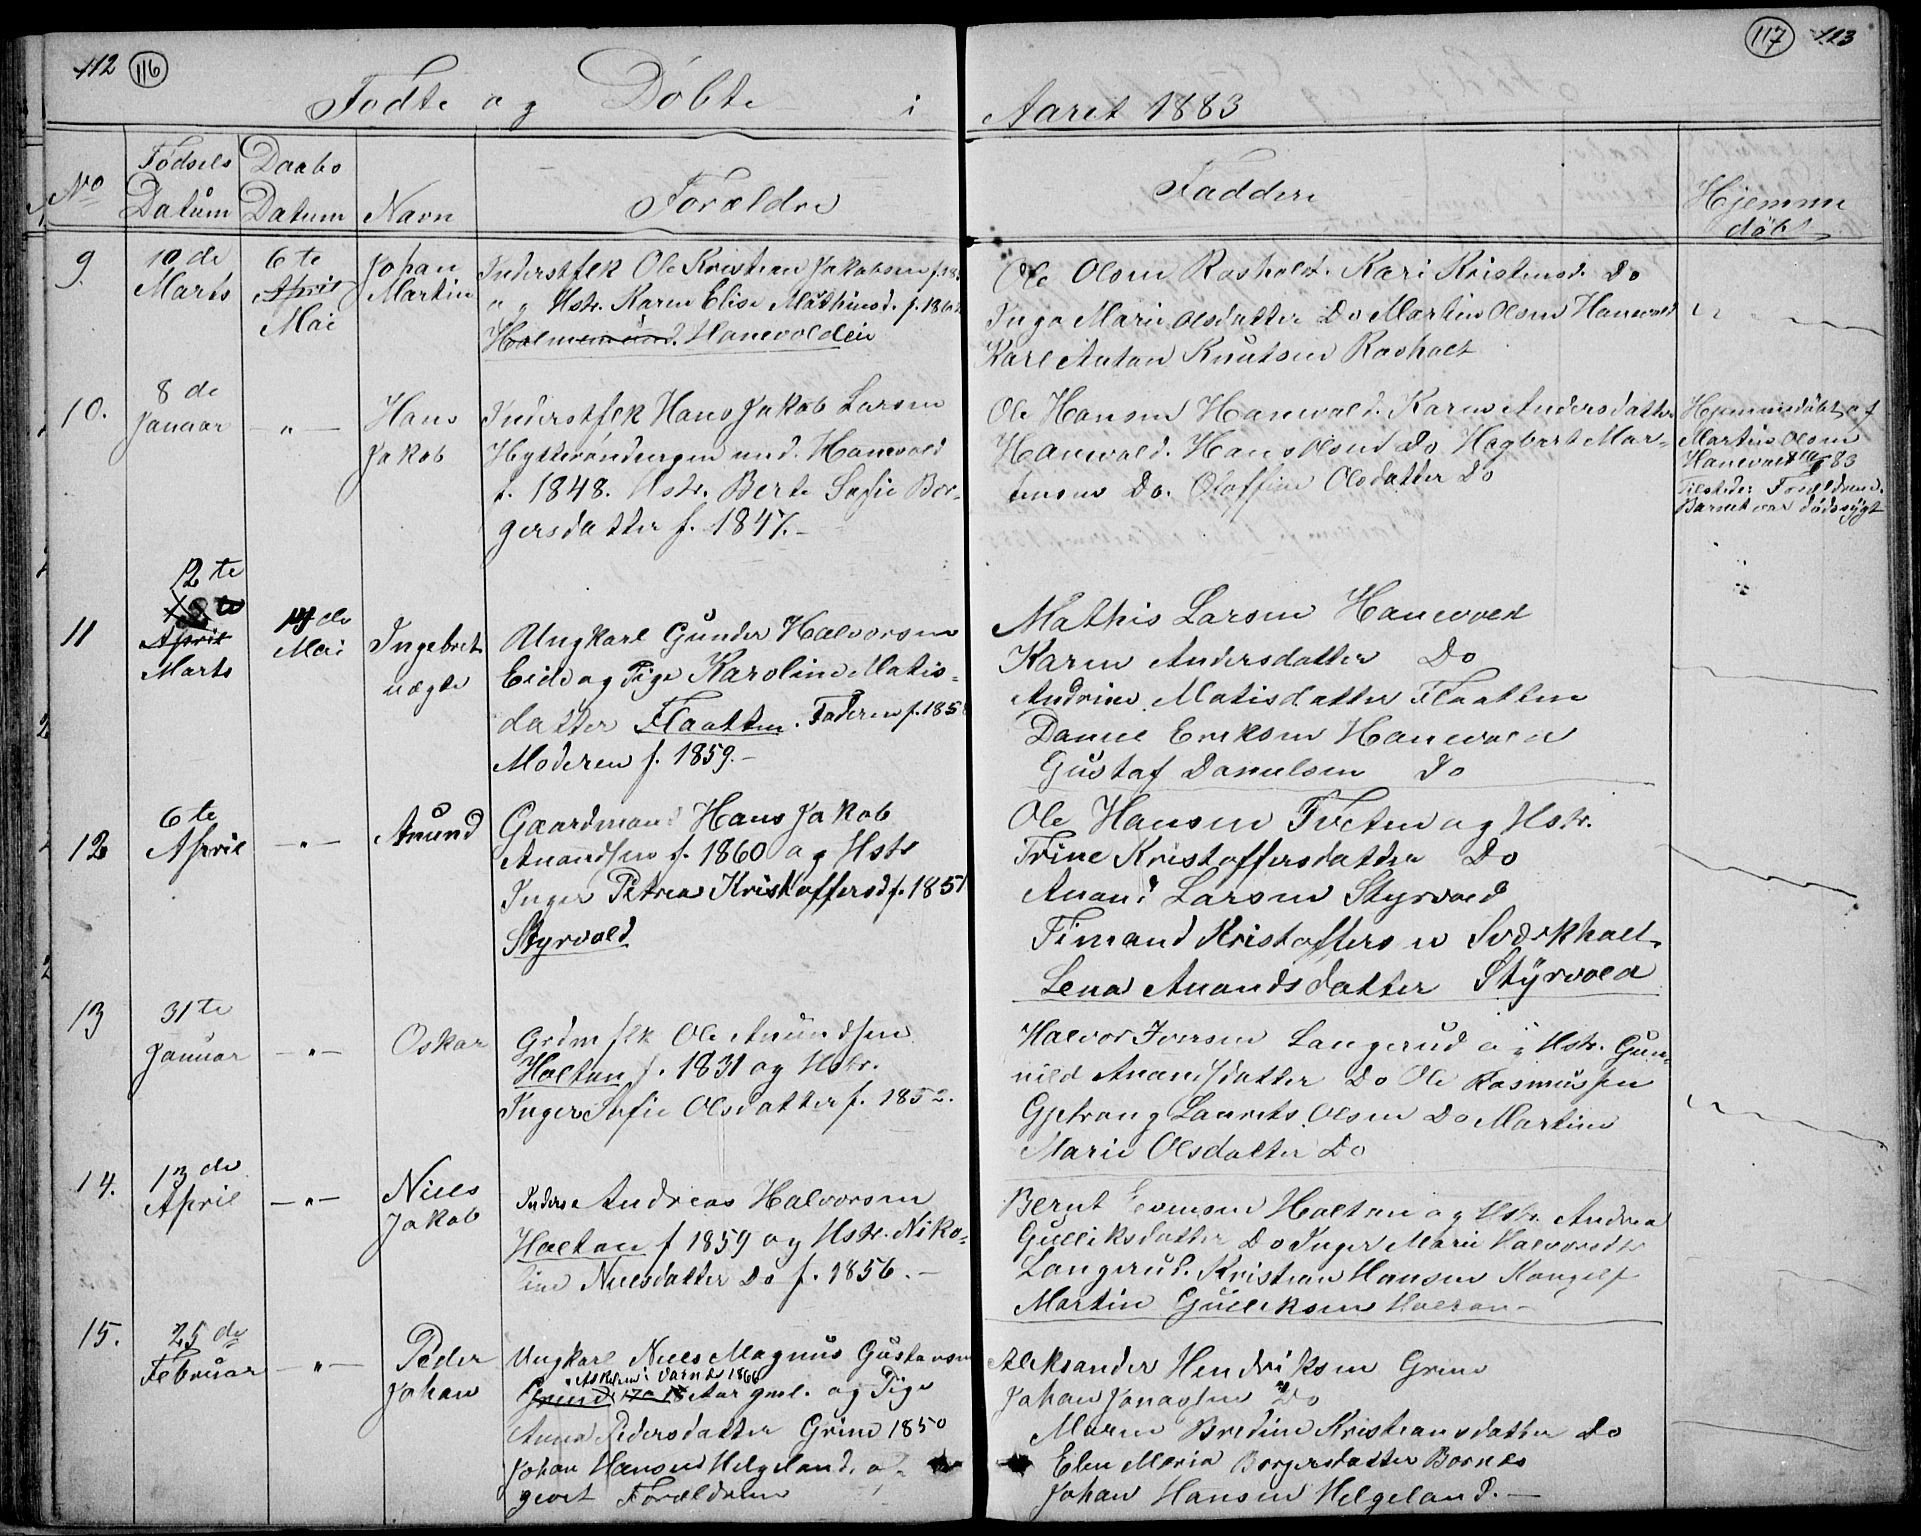 112 116
117 113
Fødte og Døbte i Aaret 1883
No
Fødsels Datum
Daabs Datum
Navn
Forældre
Faddere
Hjemme døbt
9.
10 de Marts
6 te April Mai
Johan Martin
Inderstflk Ole Kristian Jakobsen f. 18
" " Hstr. Karen Elise Mathisd. f. 186
Hanevolden
Ole Olsen Rosholt. Kari Kristensd. Do
Inga Marie Olsdatter Do Martin Olsen Hanevold
Karl Anton Knutsen Rosholt
10.
8 de Januar
— " —
Hans Jakob
Inderstflk Hans Jakob Larsen
und. Hanevold
f. 1848. Hstr. Berte Sofie Bor-
gersdatter f. 1847. –
Ole Hansen Hanevold. Karen Andersdatter
Hanevold. Hans Olsen Do Hagbart Mar-
tinsen Do. Oloffine Olsdatter Do
Hjemmedøbt af
Martin Olsen
Hanevold 83
Tilstede: Forældrene.
Barnet var dødssygt
11
12 te
April
Marts
14 de Mai
Ingebret uægte
Ungkarl Gunder Halvorsen
Eide og Pige Karoline Matis-
datter Flaatten. Faderen f. 185
Moderen f. 1859. –
Mathis Larsen Hanevold
Karen Andersdatter Do
Andrine Matisdatter Flaatten
Daniel Eriksen Hanevold
Gustaf Danielsen Do
12
6 te April
— " —
Anund
Gaardmand Hans Jakob
Anandsen f. 1860 og Hstr
Inger Petrea Kristoffersd f. 1851
Styrvold
Ole Hansen Tveten og Hstr.
Trine Kristoffersdatter Do
Anand Larsen Styrvold
Timand Kristoffersen Sværkholt.
Lena Anandsdatter Styrvold
13
31 te Januar
— " —
Oskar
Grdm flk Ole Anundsen
Holtan f. 1831 og Hstr.
Inger Sofie Olsdatter f. 1852.
Halvor Iversen Langerud og Hstr. Gun-
nild Anandsdatter Do Ole Rasmussen
Laurits Olsen Do Martine
Marie Olsdatter Do
14.
13 de April
— " —
Niels Jakob
Inderst Andreas Halvorsen
Holtan f 1859 og Hstr. Niko-
line Nielsdatter Do f. 1856. –
Bernt Evensen Holtan og Hstr. Andrea
Gulliksdatter Do Inger Marie Halvorsdtr
Langerud. Kristian Hansen
Martin Gulliksen Holtan –
15.
25 de Februar
— " —
Peder Johan
Ungkarl Niels Magnus Gustavsen
i Vaand 1866
Grund 18 Aar gml. og Pige
Anna Pedersdatter Grim 1850
Johan Hansen Helgeland, op-
givet Forældrene
Aleksander Hendriksen Grim
Johan Jonassen Do
Maren Bredine Kristiansdatter Do
Elen Maria Borgersdatter Bornes
Johan Hansen Helgeland. –